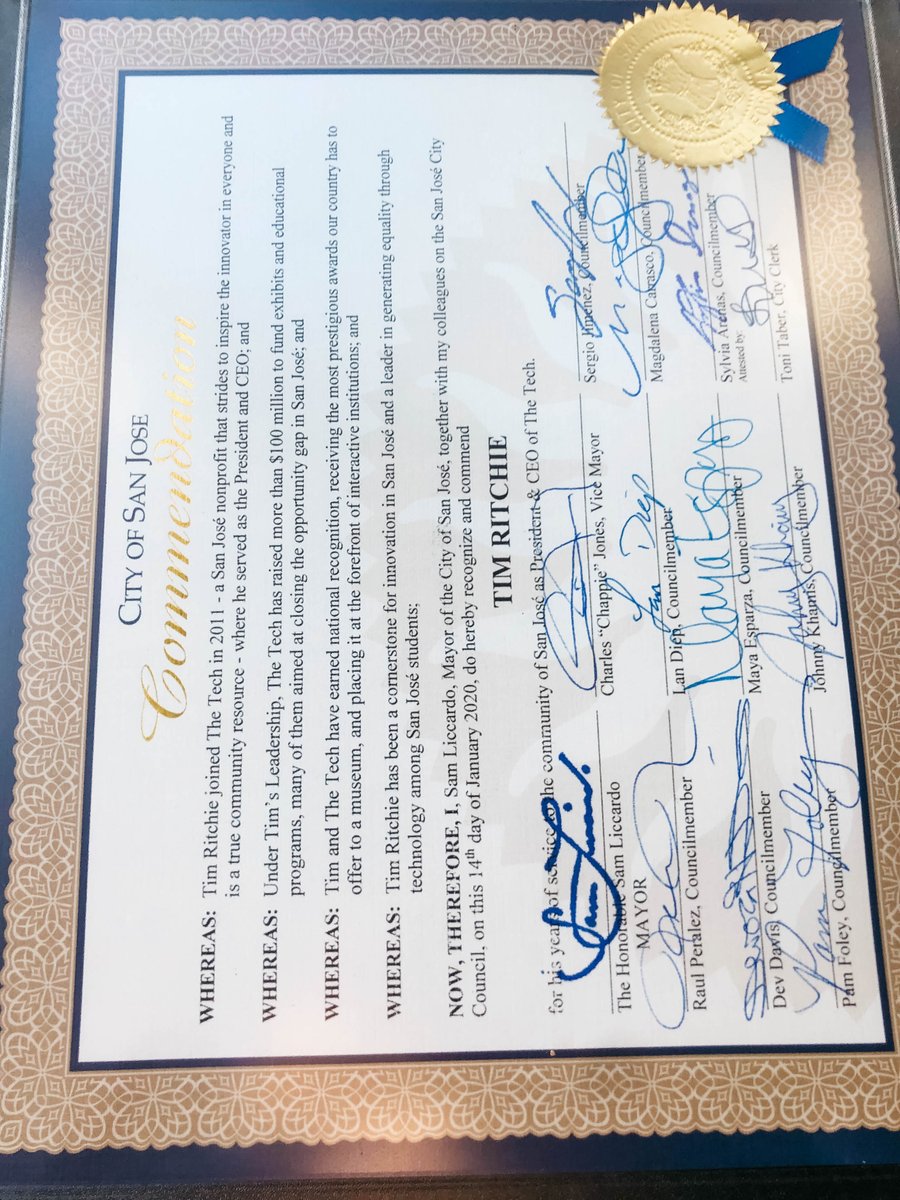 CITY OF SAN JOSE
Commendation
WHEREAS: Tim Ritchie joined The Tech in 2011 - a San José nonprofit that strides to inspire the innovator in everyone and
is a true community resource - where he served as the President and CEO; and
WHEREAS: Under Tim's Leadership, The Tech has raised more than $100 million to fund exhibits and educational
programs, many of them aimed at closing the opportunity gap in San José; and
WHEREAS: Tim and The Tech have earned national recognition, receiving the most prestigious awards our country has to
offer to a museum, and placing it at the forefront of interactive institutions; and
WHEREAS: Tim Ritchie has been a cornerstone for innovation in San José and a leader in generating equality through
technology among San José students;
NOW, THEREFORE, I, Sam Liccardo, Mayor of the City of San José, together with my colleagues on the San José City
Council, on this 14th day of January 2020, do hereby recognize and commend
TIM RITCHIE
for his years of service to the community of San José as President & CEO of The Tech.
The Honorable Sam Liccardo
MAYOR
Raul Peralez, Councilmember
Dev Davis, Councilmember
Pam Foley
Pam Foley, Councilmember
Charles "Chappie" Jones, Vice Mayor
Lan Diep
Lan Diep, Councilmember
Maya Esparza
Maya Esparza, Councilmember
Johnny Khamis, Councilmember
Sergio Jimenez, Councilmember
Magdalena Carrasco, Councilmember
Sylvia Arenas, Councilmember
Attested by:
Toni Taber, City Clerk